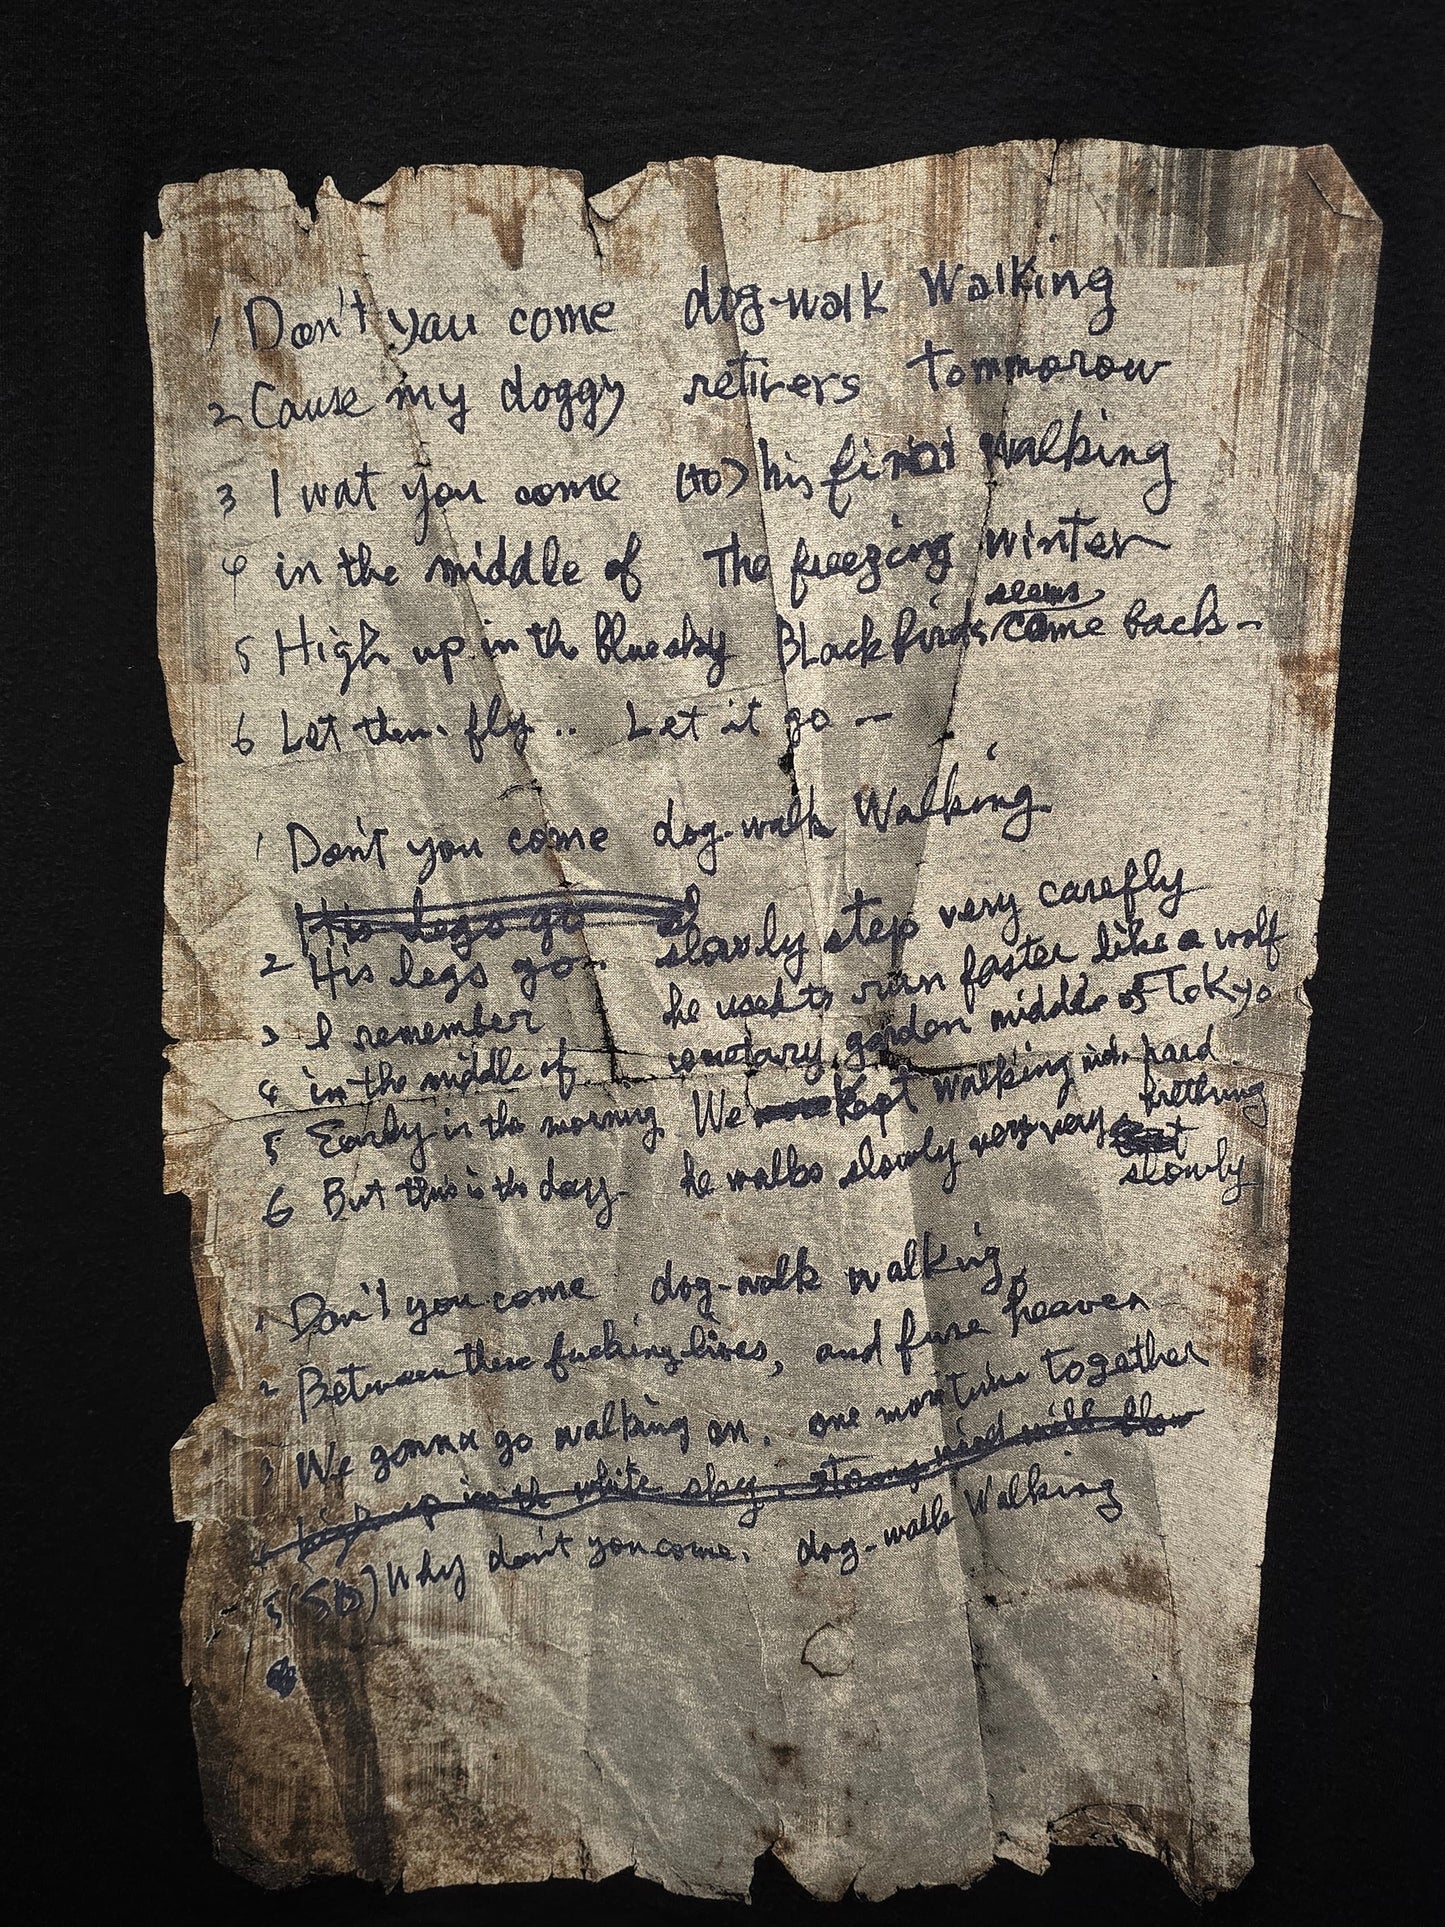 1 Don't you come dog-walk Walking
2 Cause my doggy retirers tommorow
3 I wat you come (to) his final walking
4 in the middle of The freezing winter
seems
5 High up in th blue sky BLack birds come back -
6 Let them fly.. Let it go -
1 Don't you come dog-walk Walking
His legs go sl
2 His legs go.. slowly step very carefly
3 I remember he used to run faster like a wolf
4 in the middle of cemetary gardon middle of Tokyo
5 Early in the morning We Kept walking hard
6 But this is the day. he walks slowly very very slowly
1 Don't you come dog-walk walking
2 Between these fucking lives, and heaven
3 We gonna go walking on. one more time together
4 high up in th white sky, strong wind will blow
5 Why don't you come. dog-walk Walking